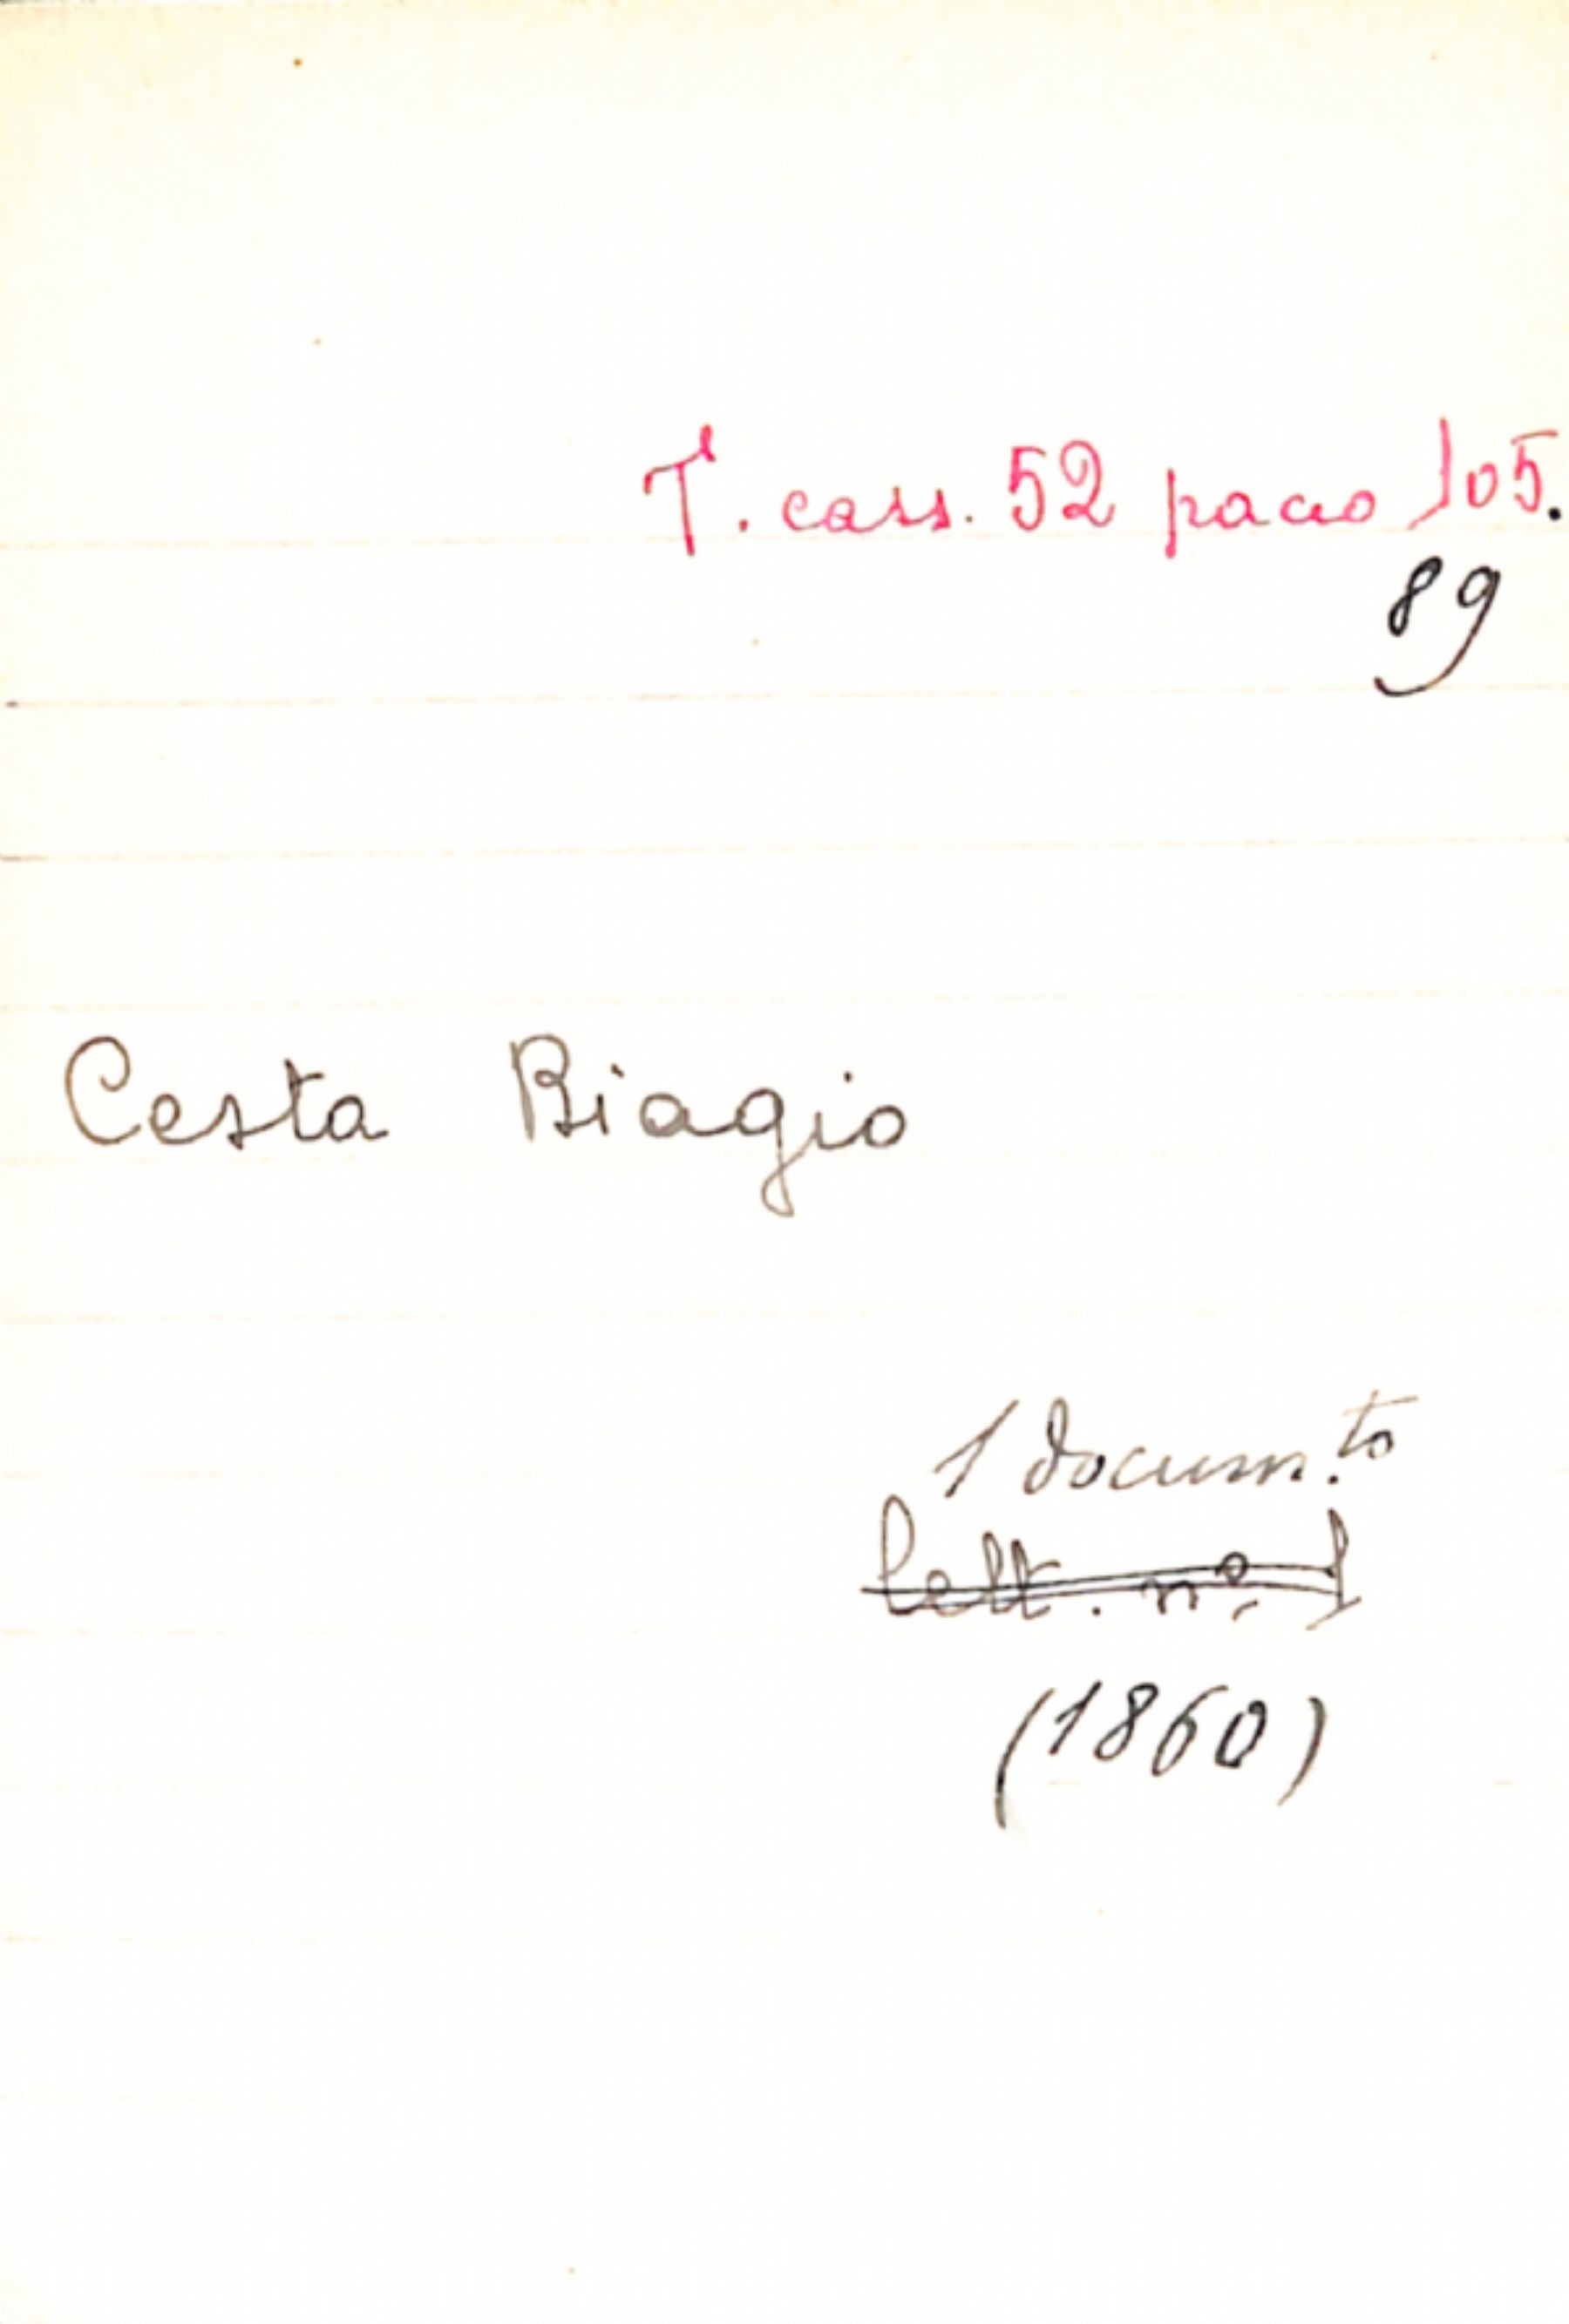 T. cass. 52 pacco 105.
89
Cesta Biagio
1 docum.to
lett. nº 1
(1860)